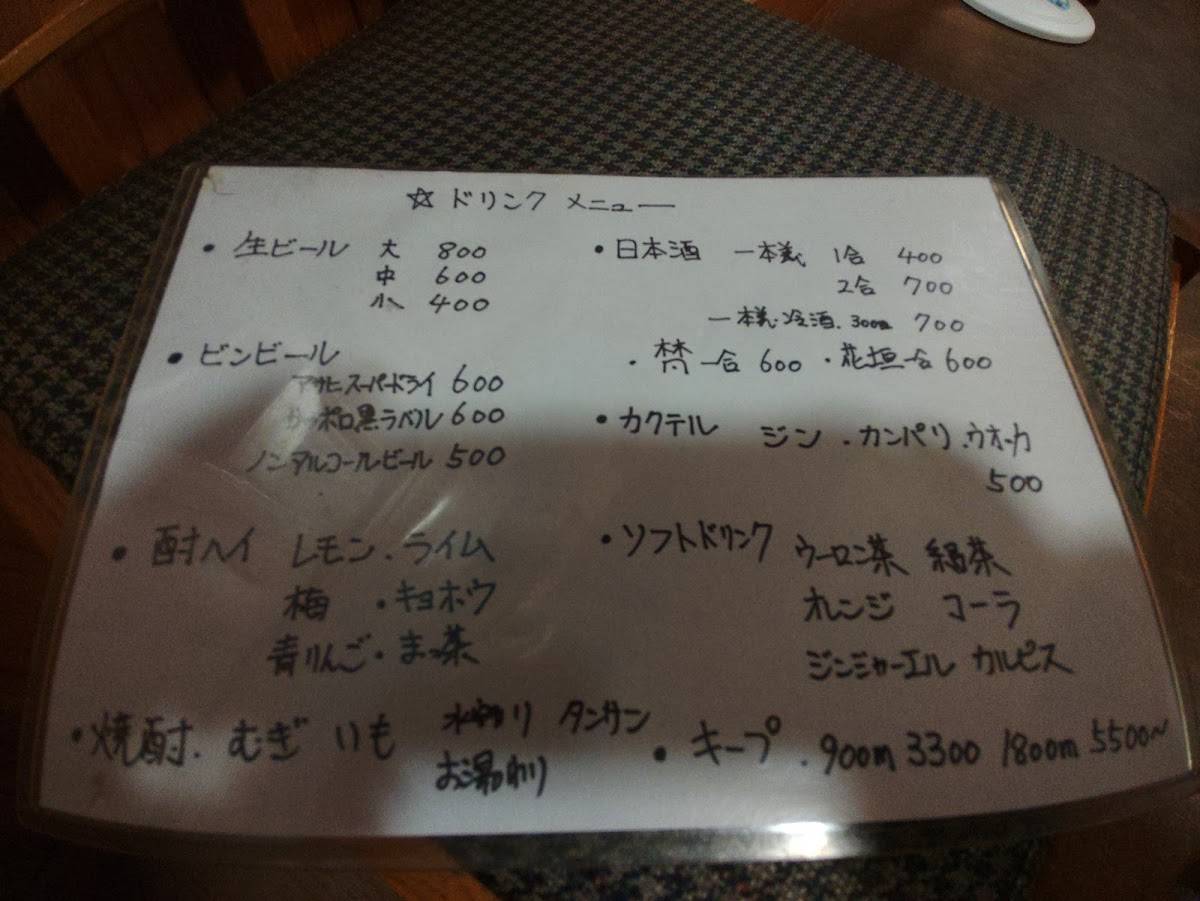 ☆ドリンク メニュー
・生ビール 大 800
中 600
小 400
・ビンビール
アサヒスーパードライ 600
サッポロ黒ラベル 600
ノンアルコールビール 500
・酎ハイ レモン・ライム
梅 ・キョホウ
青りんご・まっ茶
・焼酎.むぎ いも 水割り タンサン
お湯わり
・日本酒 一本義 1合 400
2合 700
一本義・冷酒.300ml 700
・梵 一合 600 ・花垣 一合 600
・カクテル ジン・カンパリ・ウオーカ
500
・ソフトドリンク ウーロン茶 緑茶
オレンジ コーラ
ジンジャーエル カルピス
・キープ .900m 3300 1800m 5500〜